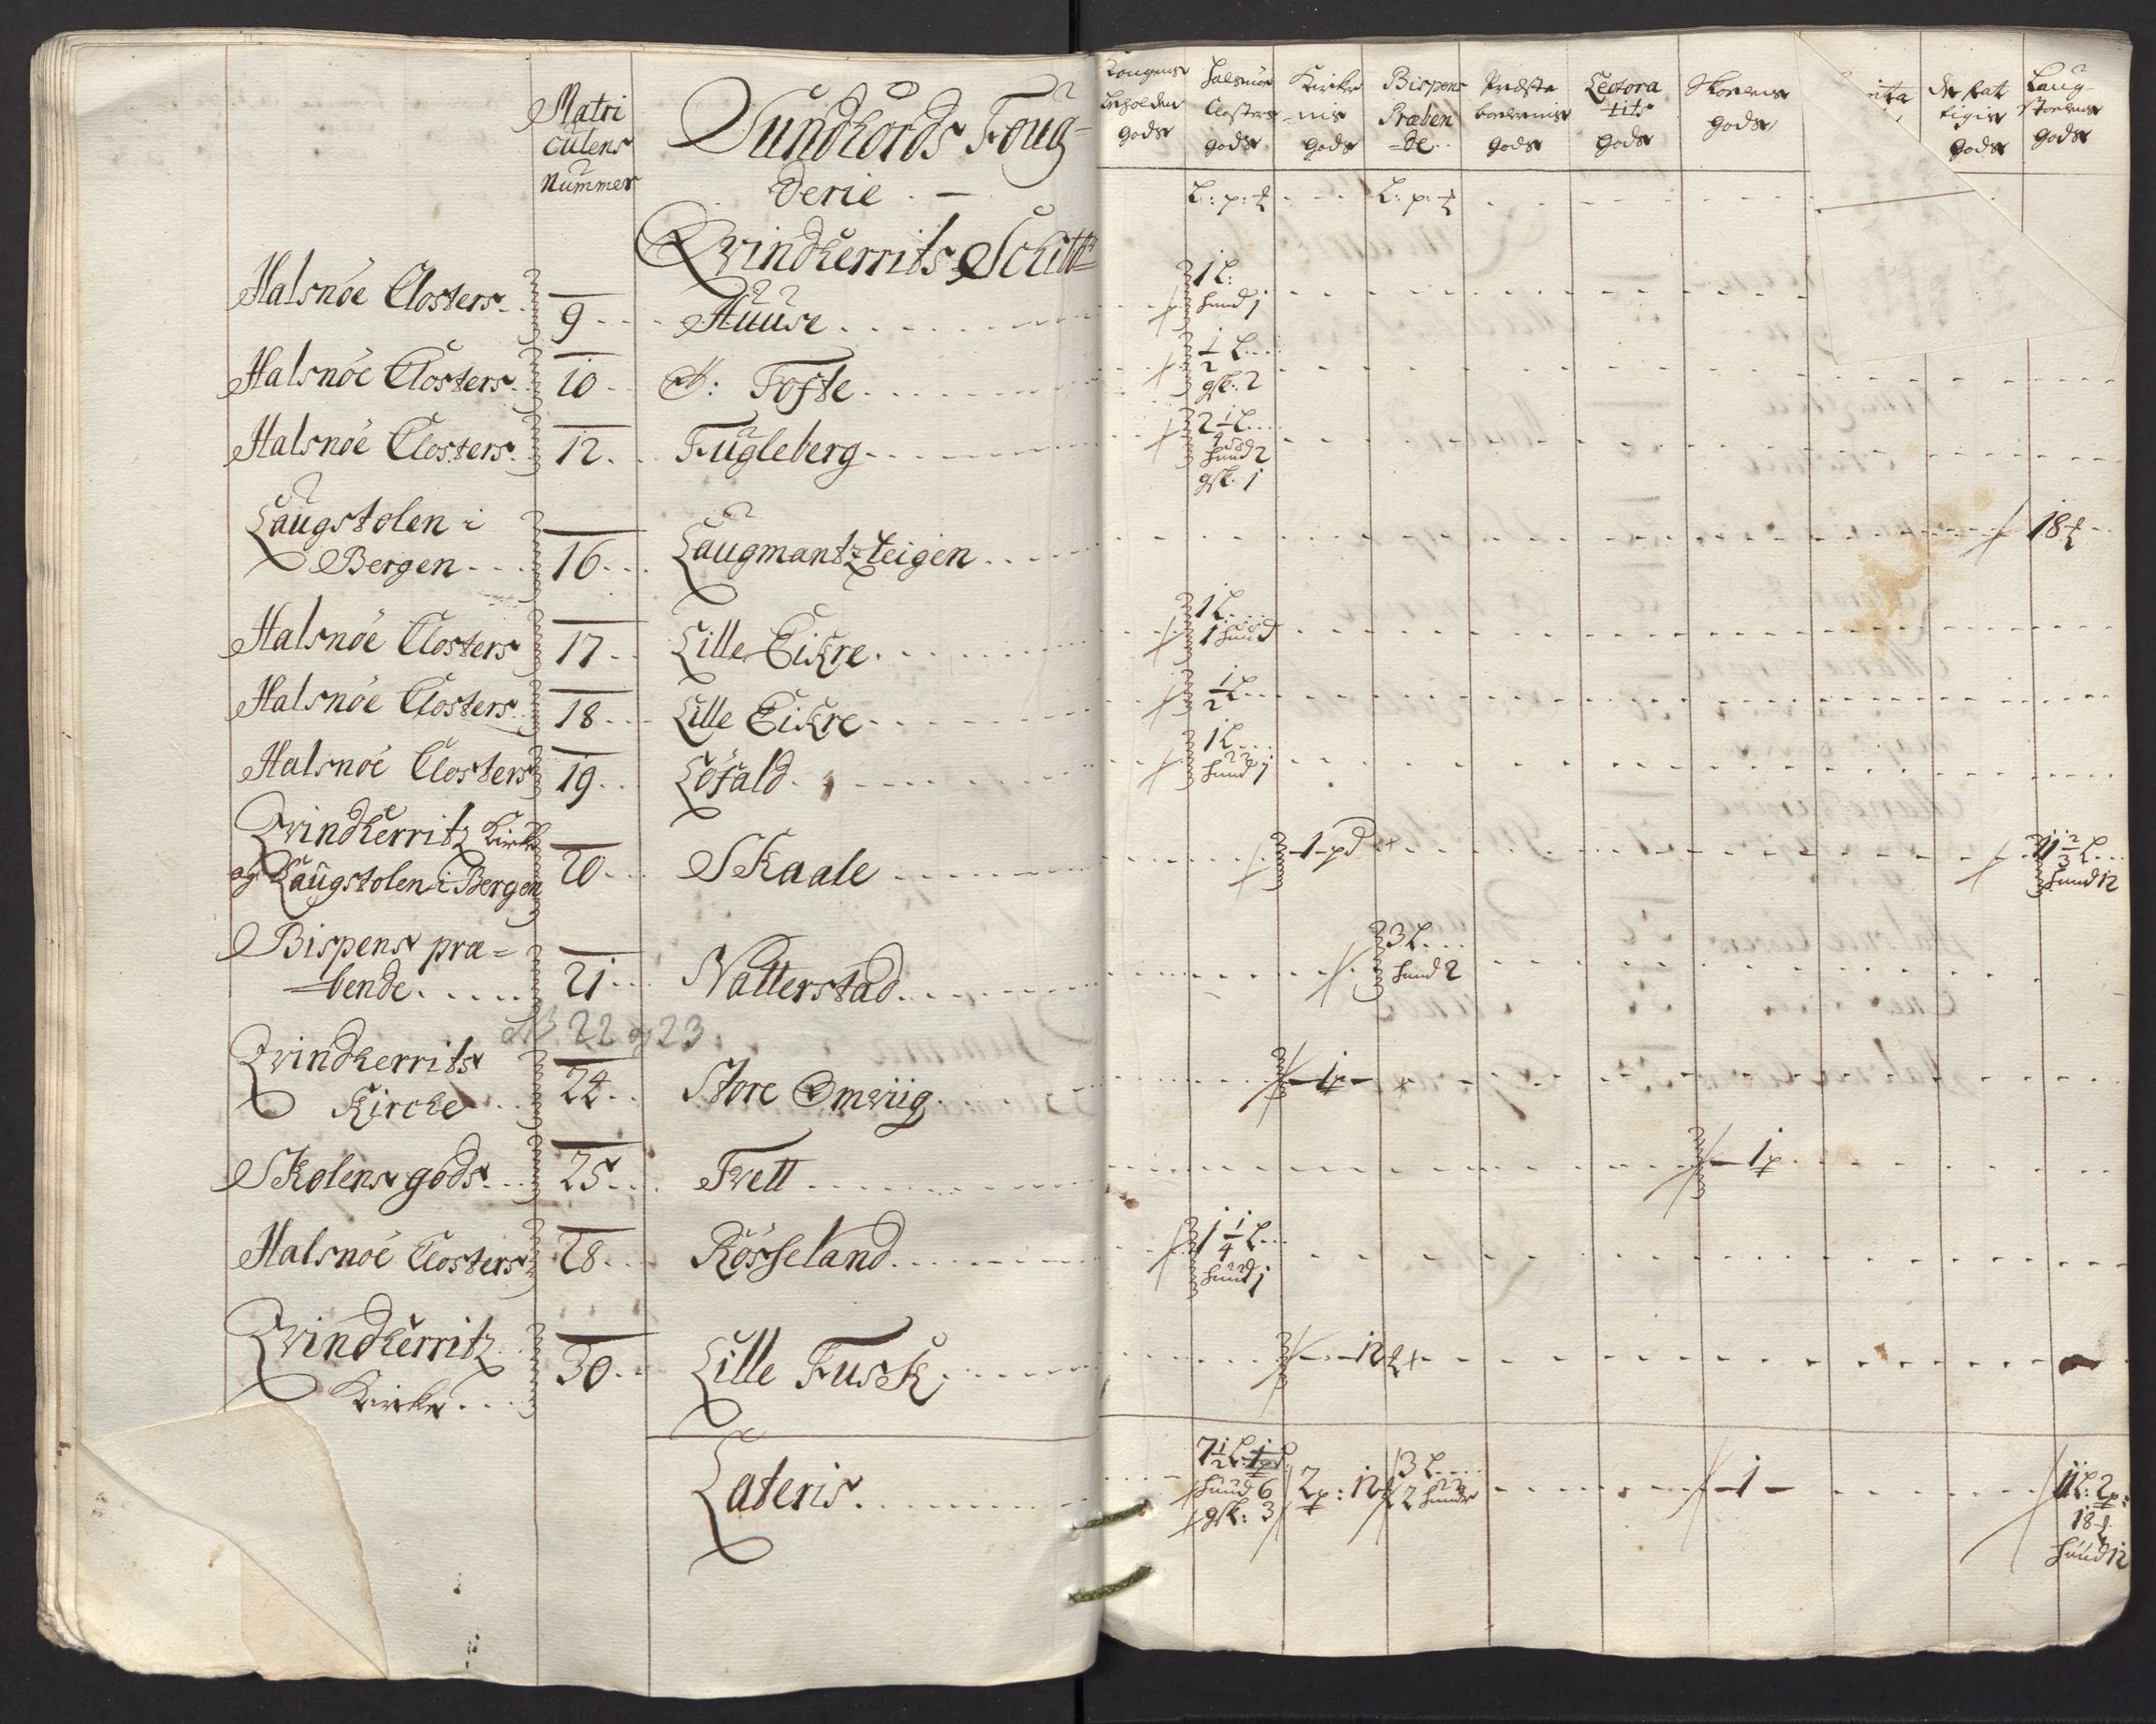 Matri
culens
Nummer
Sundhords Foug=
derie . —
Qvindherrits Schib:
Halsnöe Closters . . 9 . . . Huuse . . . . . .
Halsnöe Closters . . 10 . . Tofte . . . . . .
Halsnöe Closters . . 12 . . . Fugleberg . . . . . .
Laugstolen i
Bergen . . . 16 . . . Laugmantzteigen . . . .
Halsnöe Closters 17 . . . Lille Eikre . . . . . .
Halsnöe Closters . . 18 . . . Lille Eikre . . . . . .
Halsnöe Closters 19 . . Löfald . . . . . .
Qvindherritz Kirke
og Laugstolen i Bergen 20 . . . Skaale . . . . . .
Bispens præ=
=bende . . . . . 21 . . . Natterstad . . . . . .
22 og 23
Qvindherrits
Kirche . . . 24 . . Store Omviig . . . .
Skolens gods . . . 25 . . . Tvett . . . . . .
Halsnöe Closters 28 . . . Rösseland . . . . . .
Qvindherritz
Kirke . . . 30 . . Lille Fusk . . . . . .
Lateris . . . . . .
Kongens
beholden
gods
Halsnöe
Closters
gods
Kirker
=nis
gods
Bispens
Præben
=de . .
Præste
boelernis
gods
Lectora
=tits
gods
Skolens
gods
de fat
tiges
gods
Laug=
stolens
gods
L: p: ʉ . . . L: p: ʉ
1 L:
hund 1
1/2 L . . .
gsk: 2
2 1/4 L . . .
hund 2
gsk. 1
18 ʉ
1 L . . .
1 hund
1/2 L . . .
1 L . . .
hund 1
1 pd
11 2/3 L . . .
hund 12
3 L . . . .
hund 2
— 1 p —
— 1 p .
1 1/4 L . . .
hund 1
— 12 ʉ
7 1/2 L
hund 6
gsk: 3
2 p: 12 ʉ
3 L . . . .
2 hunder
— 1 —
11 L: 2 p:
18 ʉ
hund 12